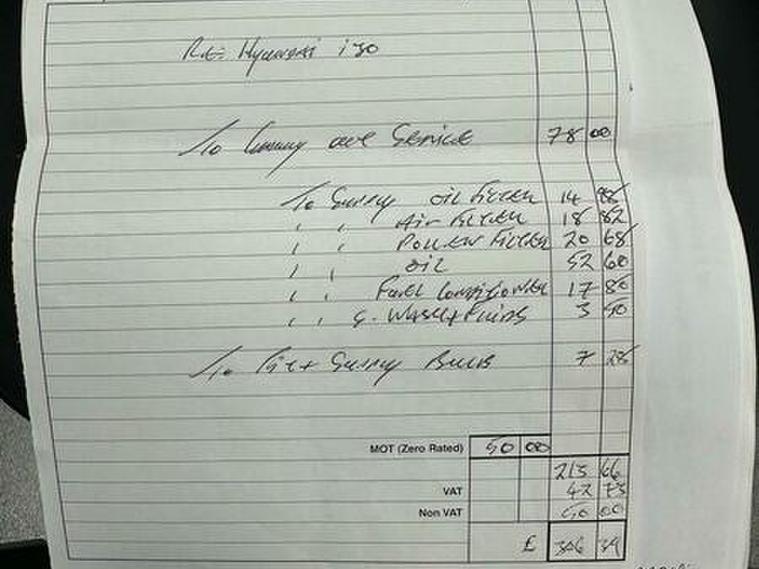 Re: Hyundai i30
To Carry out Service 78 00
To Supply oil Filter 14 98
" " Air Filter 18 82
" " Pollen Filter 20 68
" " oil 52 60
" " Fuel Conditioner 17 80
" " S. Wash + Fluids 3 50
To Fit + Supply Bulb 7 28
MOT (Zero Rated) 50 00
213 66
VAT 42 73
Non VAT 50 00
£ 306 39